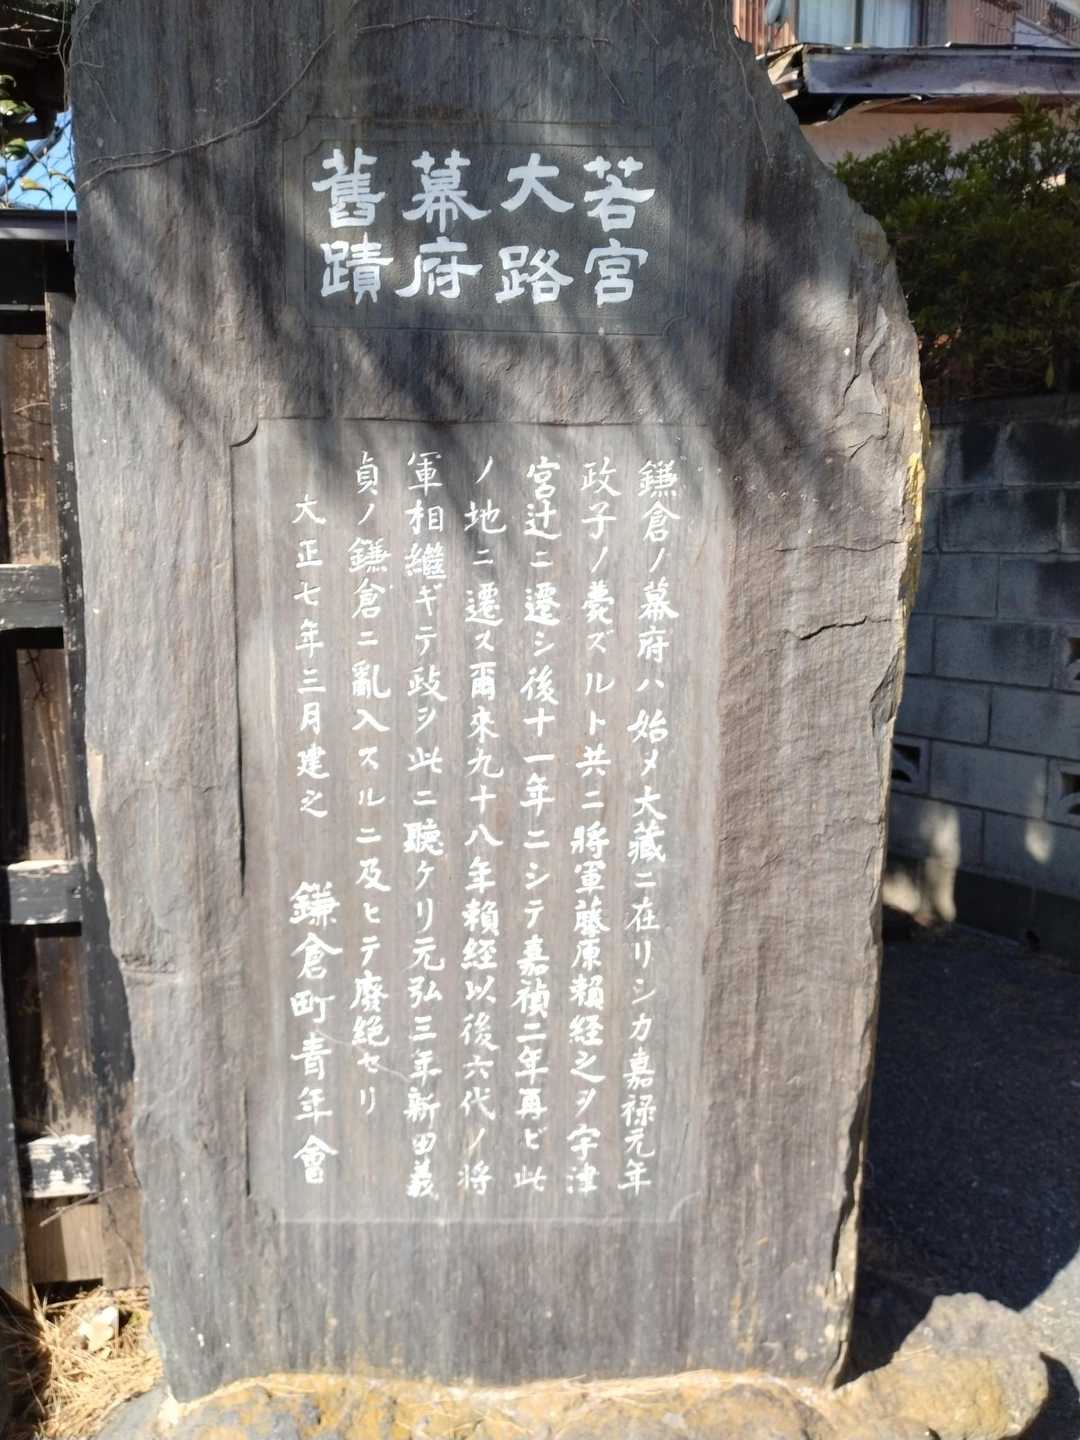 若宮
大路
幕府
舊蹟
鎌倉ノ幕府ハ始メ大藏ニ在リシカ嘉禄元年
政子ノ薨ズルト共ニ將軍藤原賴経之ヲ宇津
宮辻ニ遷シ後十一年ニシテ嘉禎二年再ビ此
ノ地ニ遷ス爾来九十八年賴経以後六代ノ将
軍相繼ギテ政ヲ此ニ聽ケリ元弘三年新田義
貞ノ鎌倉ニ亂入スルニ及ヒテ廢絶セリ
大正七年三月建之 鎌倉町青年會